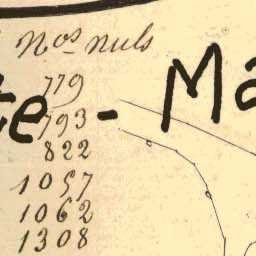 Nos nuls
779
te - Ma
793
822
1057
1062
1308